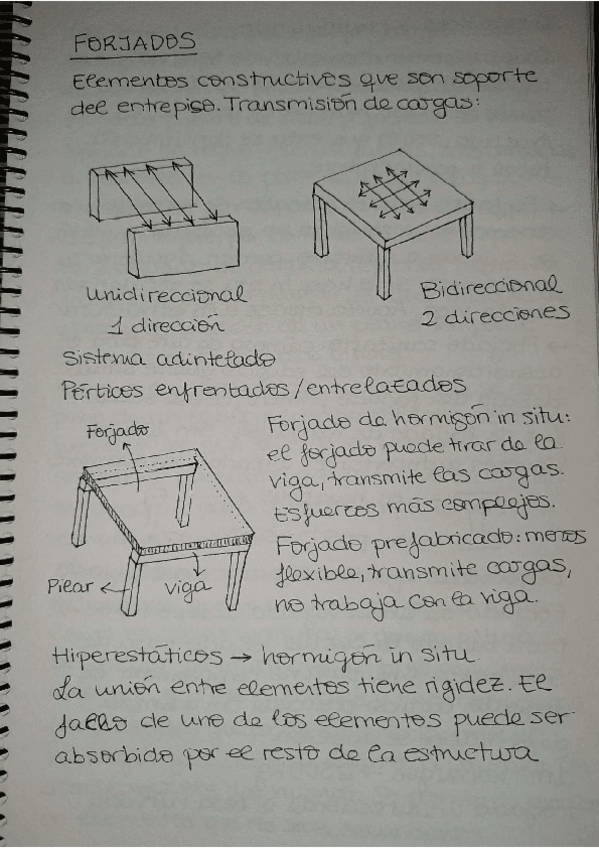 FORJADOS
Elementos constructivos que son soporte
del entrepiso. Transmisión de cargas:
Unidireccional
1 dirección
Bidireccional
2 direcciones
Sistema adintelado
Pórticos enfrentados/entrelazados
Forjado
Pilar
viga
Forjado de hormigón in situ:
el forjado puede tirar de la
viga, transmite las cargas.
Esfuerzos más complejos.
Forjado prefabricado: menos
flexible, transmite cargas,
no trabaja con la viga.
Hiperestáticos → hormigón in situ
La unión entre elementos tiene rigidez. El
fallo de uno de los elementos puede ser
absorbido por el resto de la estructura